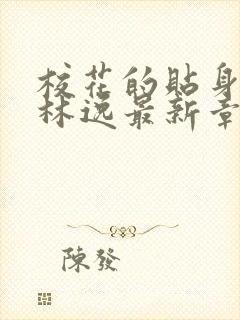 校花的貼身
林逸最新章
陳發